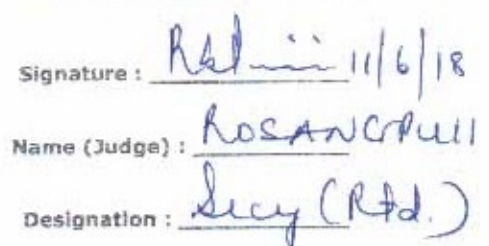 Signature : 11/6/18
Name (Judge) : ROSANGPUII
Designation : Secy (Rtd.)